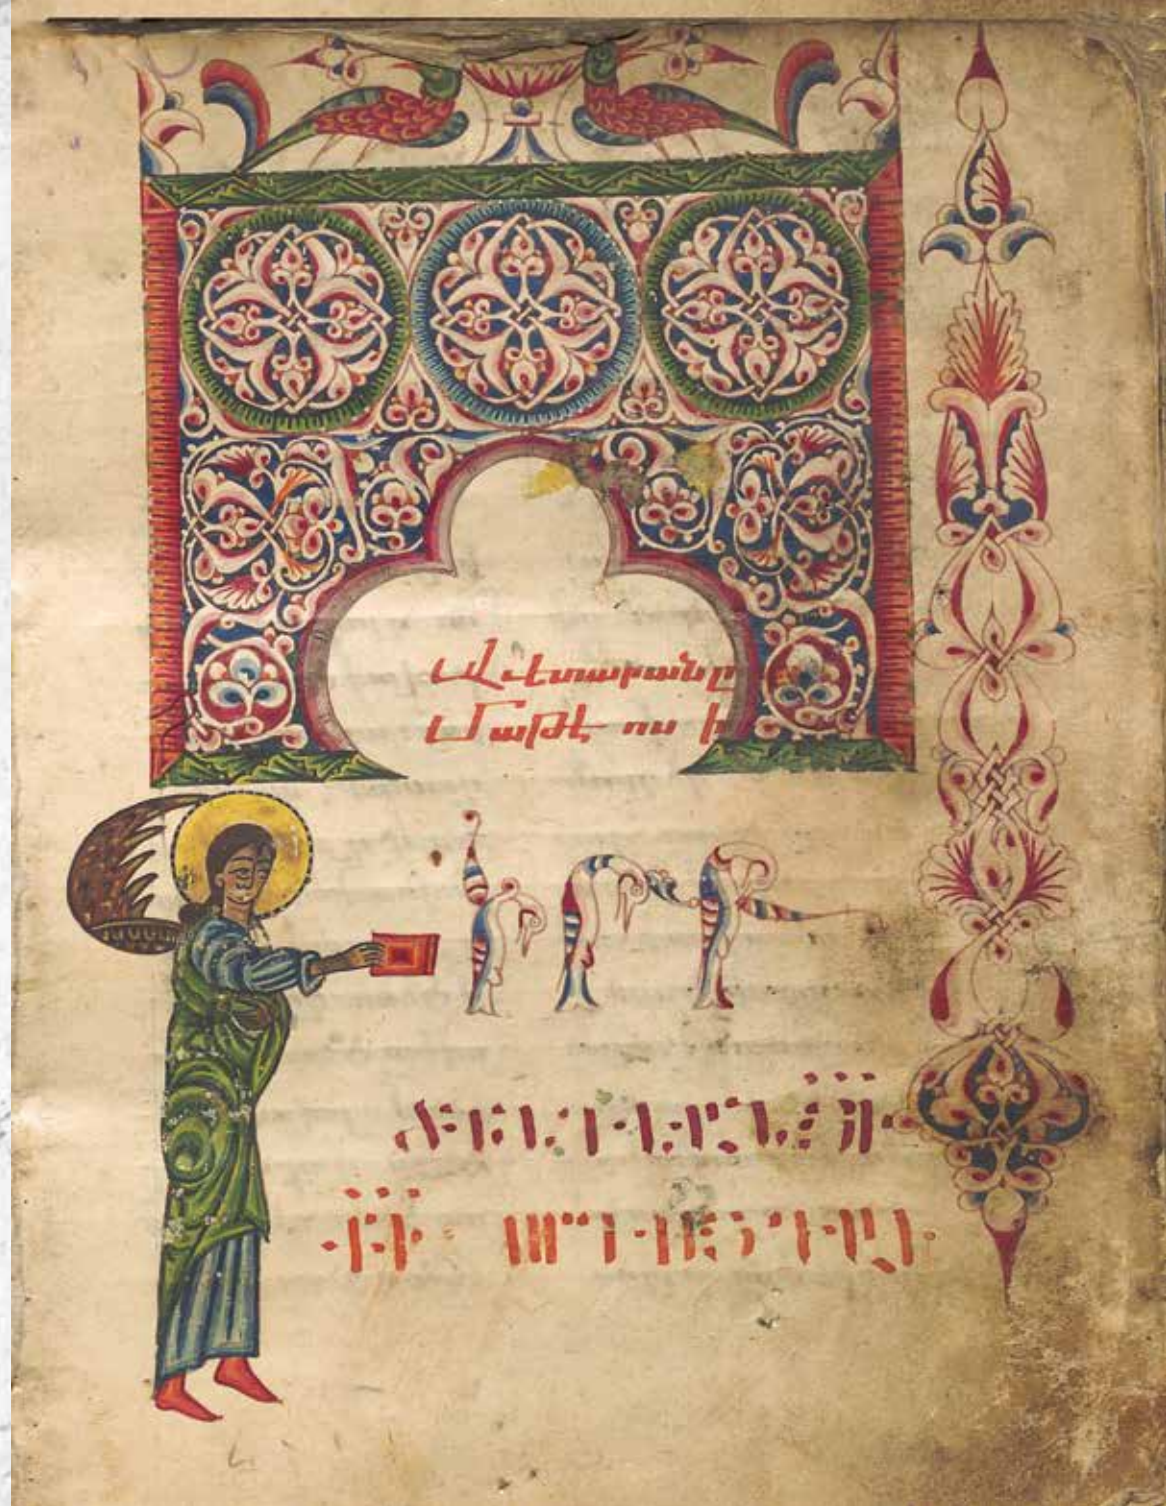 Աւետարանը
Մաթէոսի
Գիրք
ծննդեան ՅԻ
ՔԻ որդւոյ